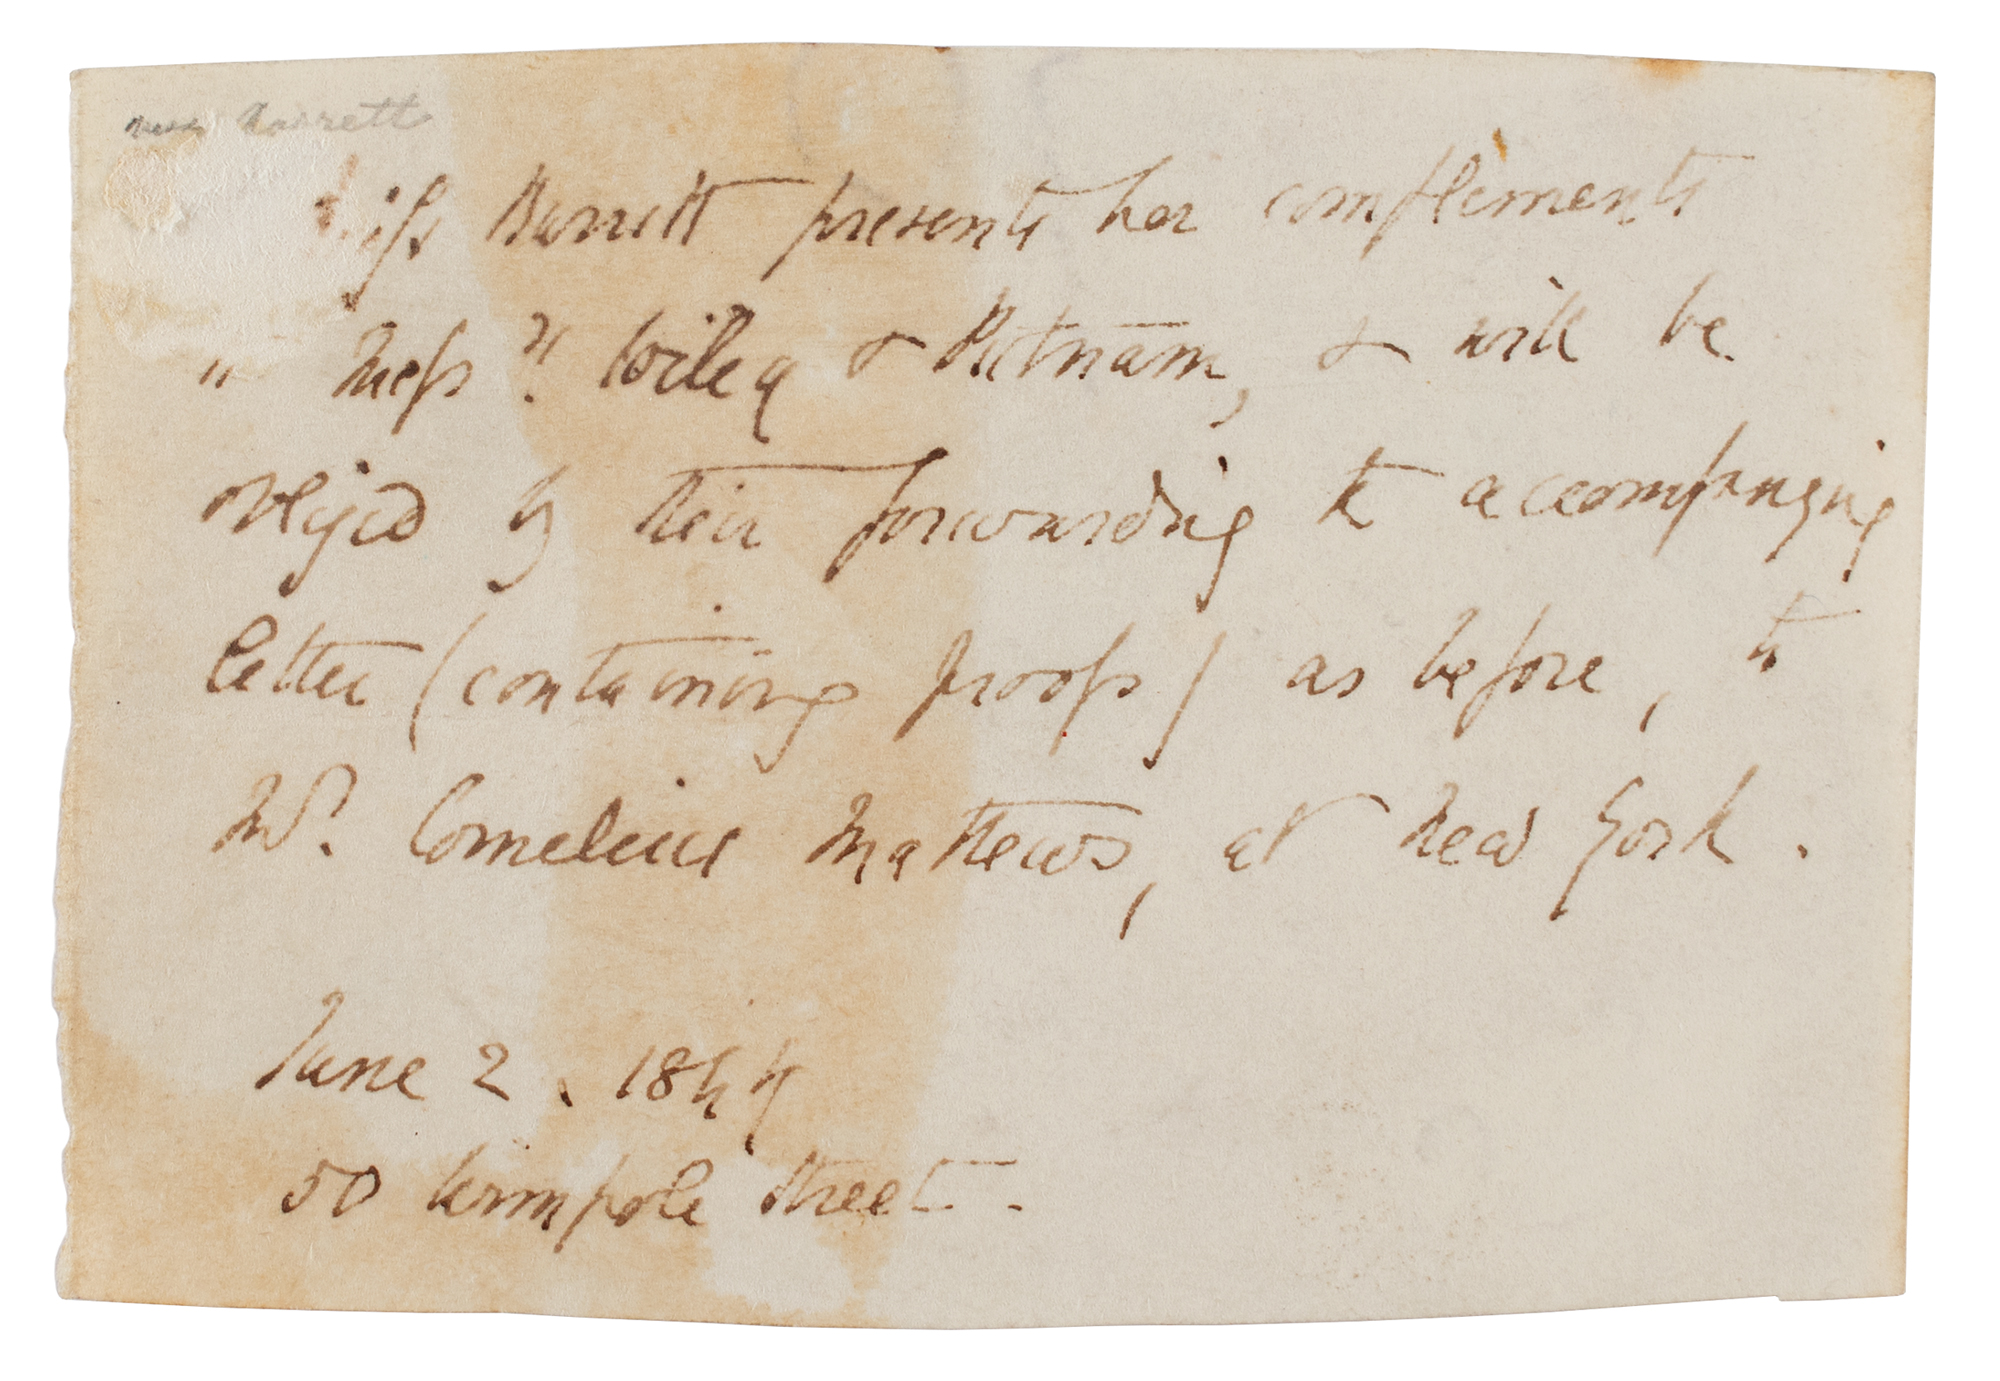 Miss Barrett
Miss Barrett presents her compliments
to Mess.rs Wiley & Putnam, & will be
obliged by their forwarding the accompanying
letter (containing proofs) as before, to
Mr. Cornelius Mathews, at New York.
June 2. 1844
50 Wimpole Street.